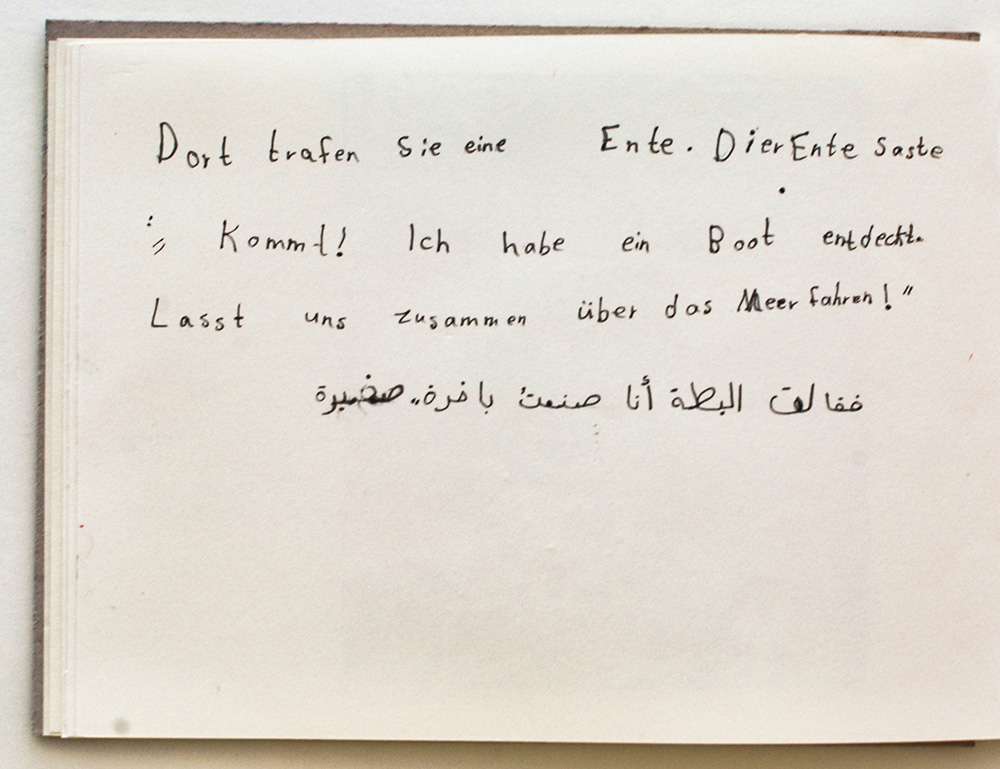 Dort trafen Sie eine Ente. DierEnte saste
:„ Kommt! Ich habe ein Boot entdeckt.
Lasst uns zusammen über das Meer fahren!"
فقالت البطة أنا صنعت باخرة.. صغيرة